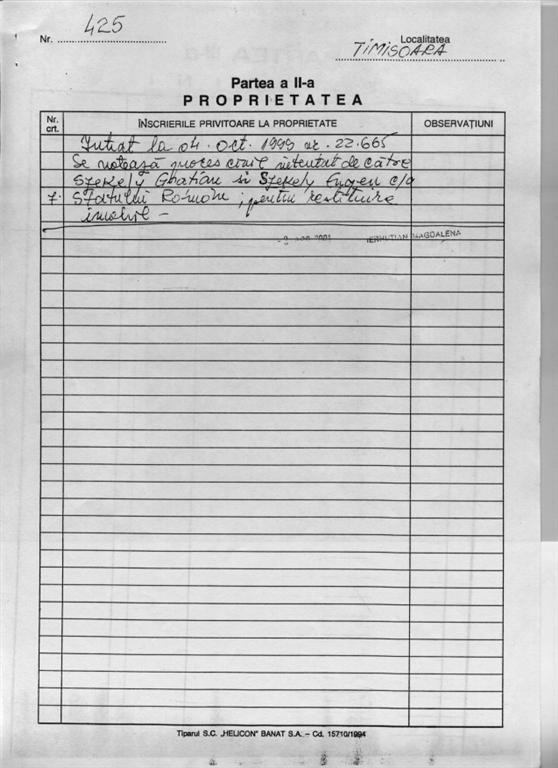 Nr. 425
Localitatea
TIMISOARA
Partea a II-a
PROPRIETATEA
Nr. crt.
ÎNSCRIERILE PRIVITOARE LA PROPRIETATE
OBSERVAȚIUNI
Intrat la 04. oct. 1999 nr. 22.665
Se notează proces civil intentat de către
Szekely și Szekely Eugen c/a
7. Statului Român; pentru restituire
imobil –
2001 MAGDALENA
Tiparul S.C. „HELICON” BANAT S.A. – Cd. 15710/1994